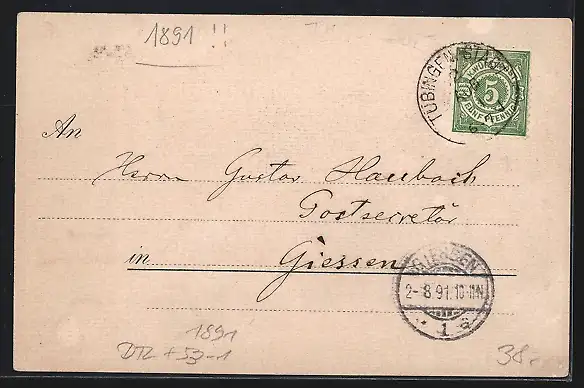 1891 !!
TÜBINGEN
5
FÜNF PFENNIG
An
Herrn Gustav Haubach
Postsecretär
in Giessen
GIESSEN
2-8 91. 10-11N
* 1 a
1891
38.-